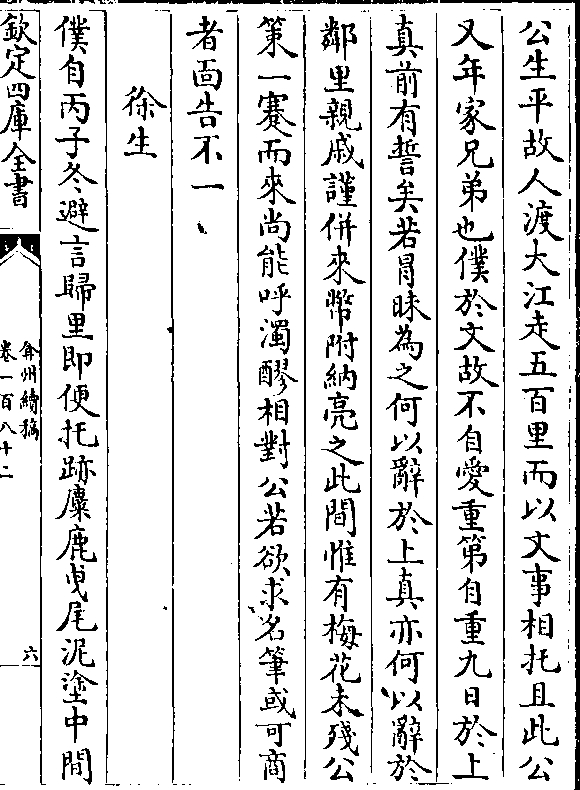 公生平故人渡大江走五百里而以文事相托且此公
又年家兄弟也僕於文故不自愛重第自重九日於上
真前有誓矣若冐昧為之何以辭於上真亦何以辭於
鄰里親戚謹併來幣附納亮之此間惟有梅花未殘公
策一蹇而來尚能呼濁醪相對公若欲求名筆或可商
者面告不一
徐生
僕自丙子冬避言歸里即便托跡麋鹿曵尾泥塗中間
欽定四庫全書
弇州續稿
卷一百八十二
六